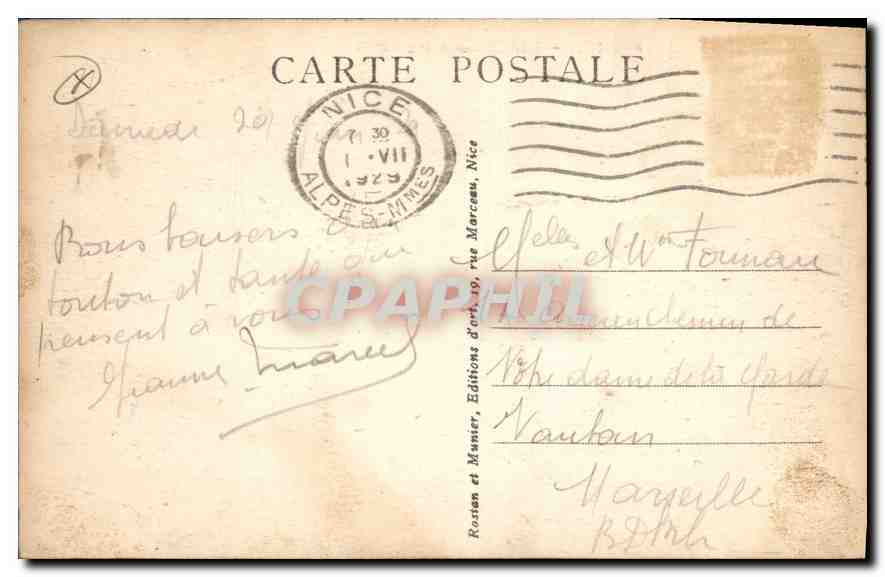 CARTE POSTALE
NICE
7 30
1 · VII
1929
ALPES-MMES
Samedi 29
Bons baisers de
tonton et tante qui
pensent à vous
Jeanne Marcel
Rostan et Munier, Editions d'art, 19, rue Marceau, Nice
et
Ancien chemin de
Notre dame de la Garde
Vauban
Marseille
BDRh
CPAPHIL